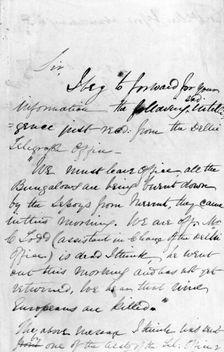 Sir,
I beg to forward for your
information the following Intelli
=gence just recd. from the Delhi
Telegraph Office
"We must leave Office, all the
Bungalows are being burnt down
by the Sepoys from Meerut, they came
in this morning. We are off. Mr
C Todd (assistant in Charge of the Delhi
Office) is dead I think, he went
out this morning and has not yet
returned, We hear that nine
Europeans are killed."
The above message I think was sent
one of the